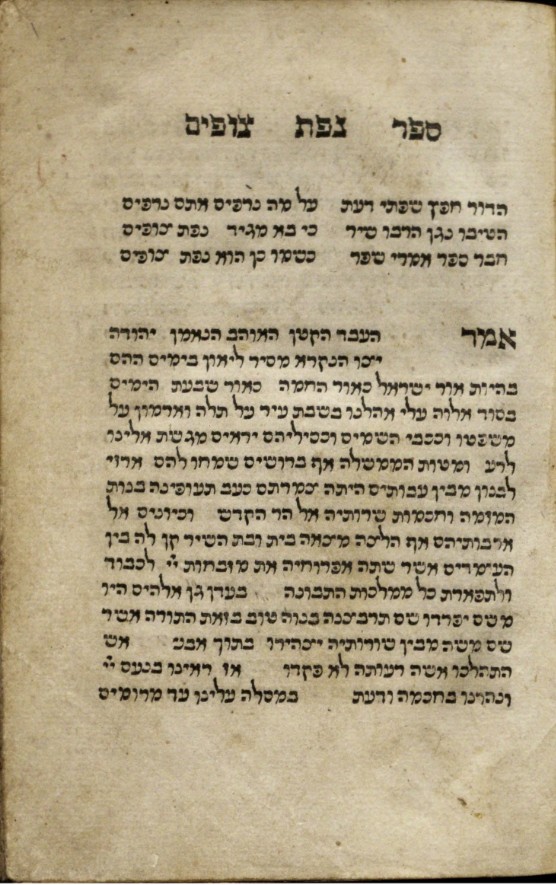 ספר נפת צופים
הדור חפץ שפתי דעת על מה נרפים אתם נרפים
הטיבו נגן הרבו שיר כי בא מגיד נפת צופים
חבר ספר אמרי שפר כשמו כן הוא נפת צופים
אמר העבד הקטן האוהב הנאמן יהודה
יצו הנקרא מסיר ליאון בימים ההם
בהיות אור ישראל כאור החמה כאור שבעת הימים
בסוד אלוה עלי אהלנו בשבת עיר על תלה וארמון על
משפטו וככבי השמים וכסיליהם יראים מגשת אלינו
לרע ומטות הממשלה אף ברושים שמחו להם ארזי
לבנון מבין עבותים היתה צמרתם כעב תעופינה בנות
המזמה וחכמות שרותיה אל הר הקדש וכיונים אל
ארבותיהם אף הליכה מצאה בית ובת השיר קן לה בין
העמרים אשר שתה אפרוחיה את מזבחות יי לכבוד
ולתפארת כל ממלכות התבונה בעדן גן אלהים היו
משם יפרדו שם תרבצנה בנוה טוב בזאת התורה אשר
שם משה מבין שורותיה יצהירו בתוך אבני אש
התהלכו אשה רעותה לא פקדו אז ראינו בנעם יי
ונהרנו בחכמה ודעת במסלה עלינו עד מרומים